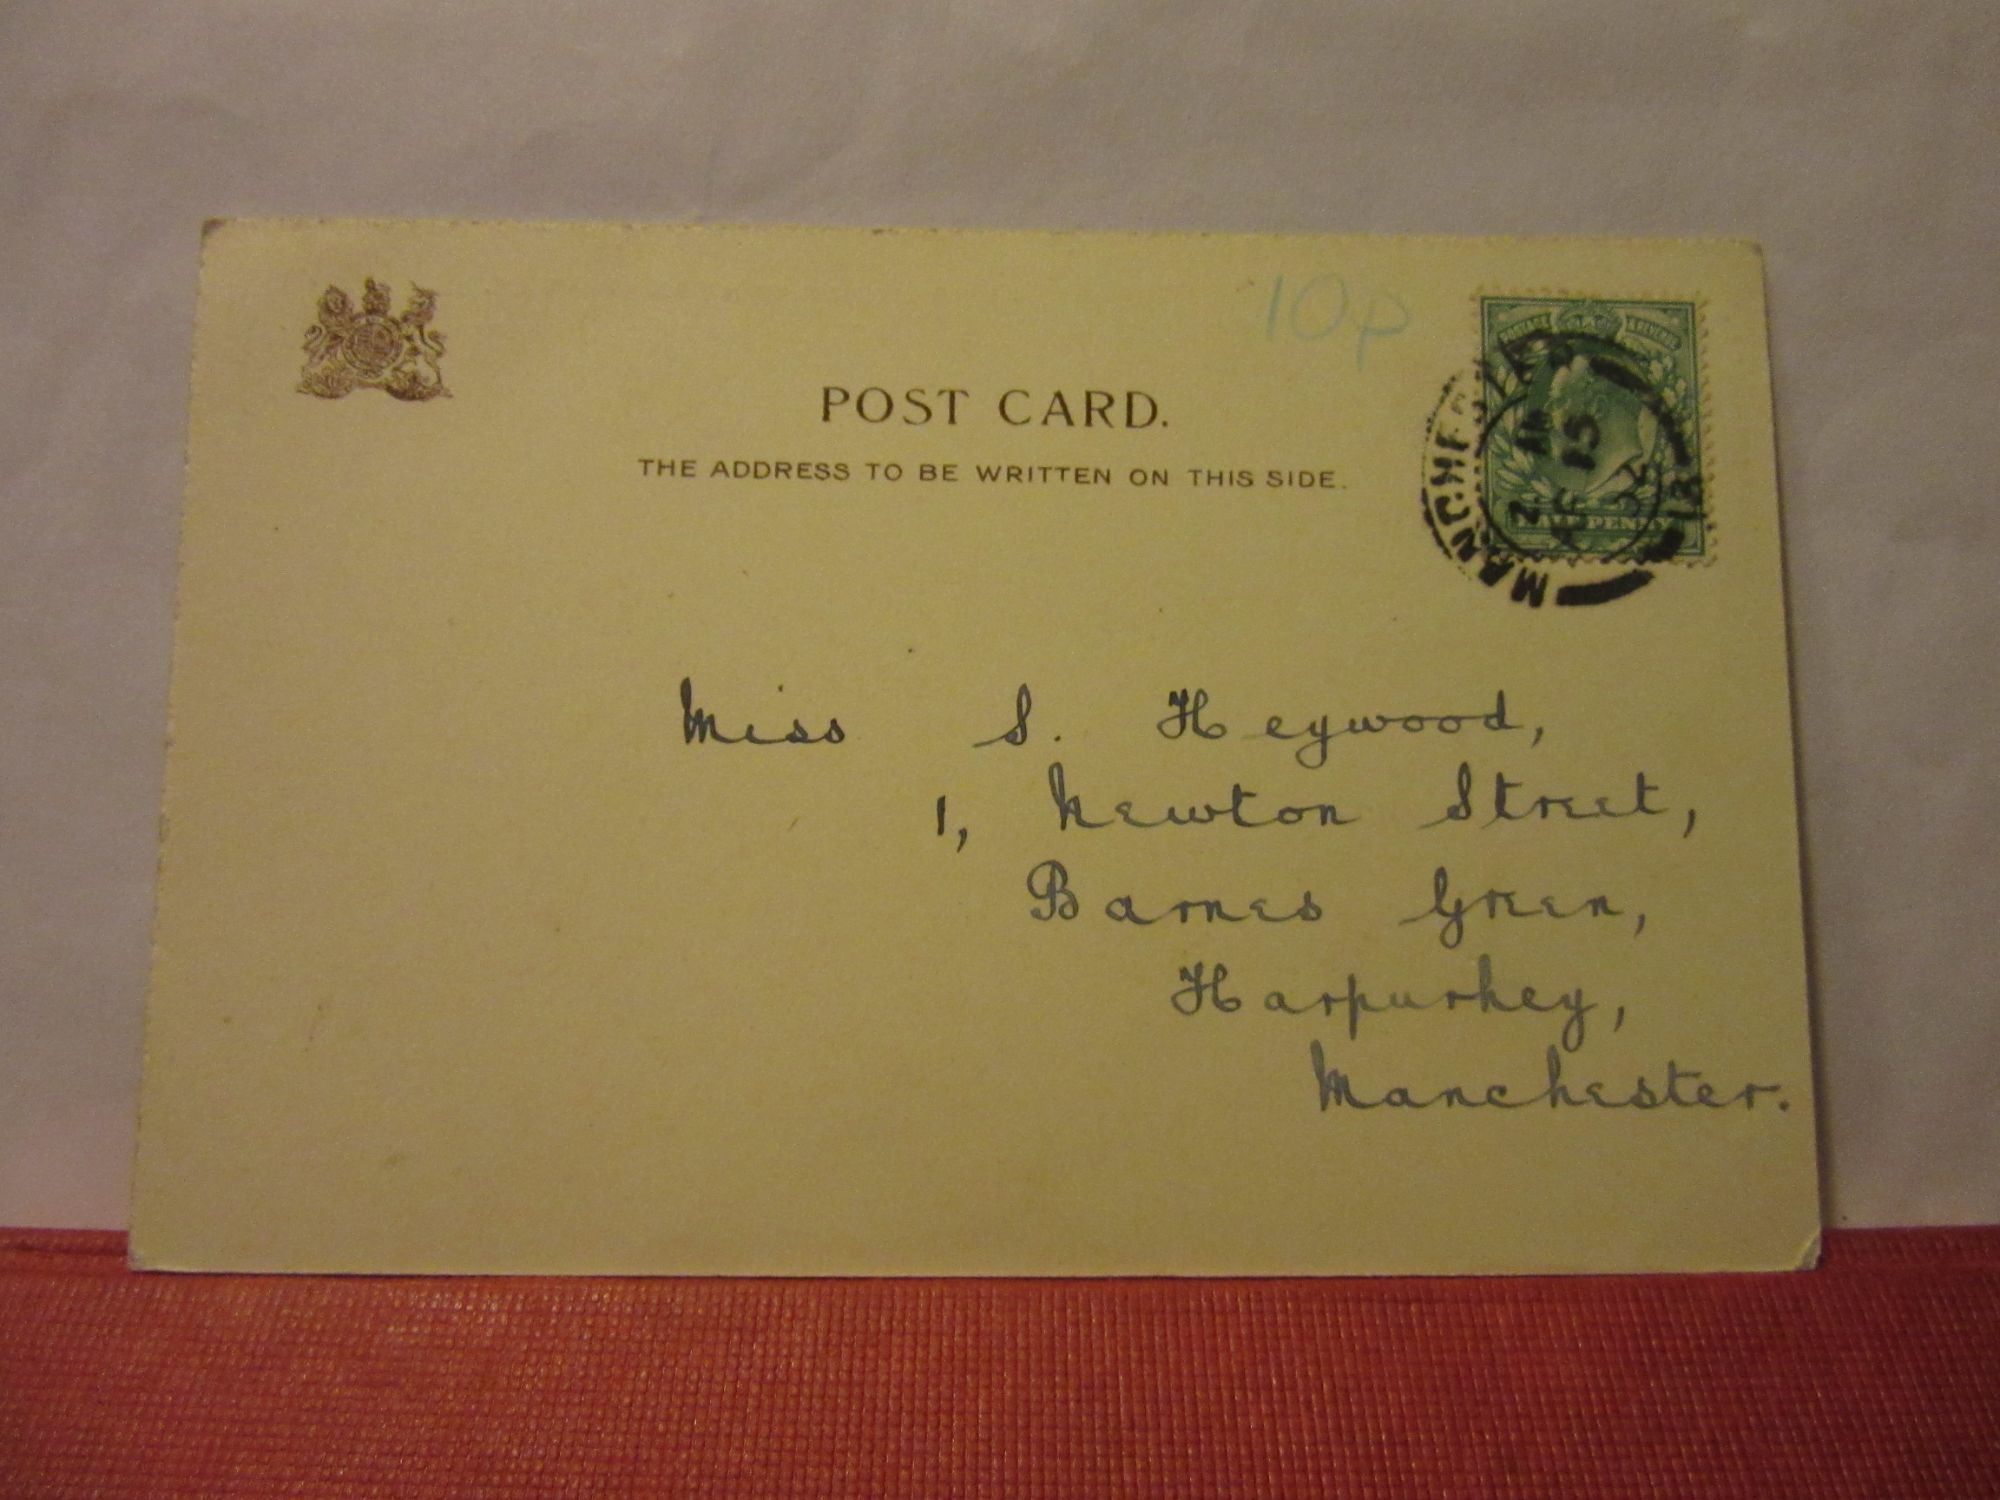 10p
POST CARD.
THE ADDRESS TO BE WRITTEN ON THIS SIDE.
POSTAGE & REVENUE
HALFPENNY
MANCHESTER
2. AM
15
18
Miss S. Heywood,
1, Newton Street,
Barnes Green,
Harpurhey,
Manchester.